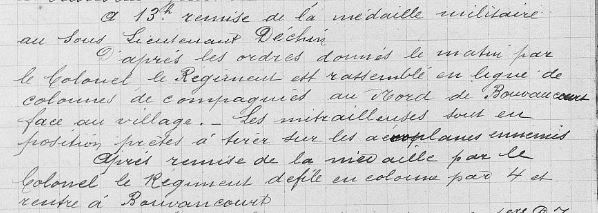 A 13h remise de la médaille militaire
au Sous Lieutenant Déchin
D'après les ordres donnés le matin par
le Colonel le Régiment est rassemblé en ligne de
colonnes de compagnies au Nord de Bouvancourt
face au village. _ Les mitrailleuses sont en
position prêtes à tirer sur les aéroplanes ennemis
Après remise de la médaille par le
Colonel le Régiment défile en colonne par 4 et
rentre à Bouvancourt